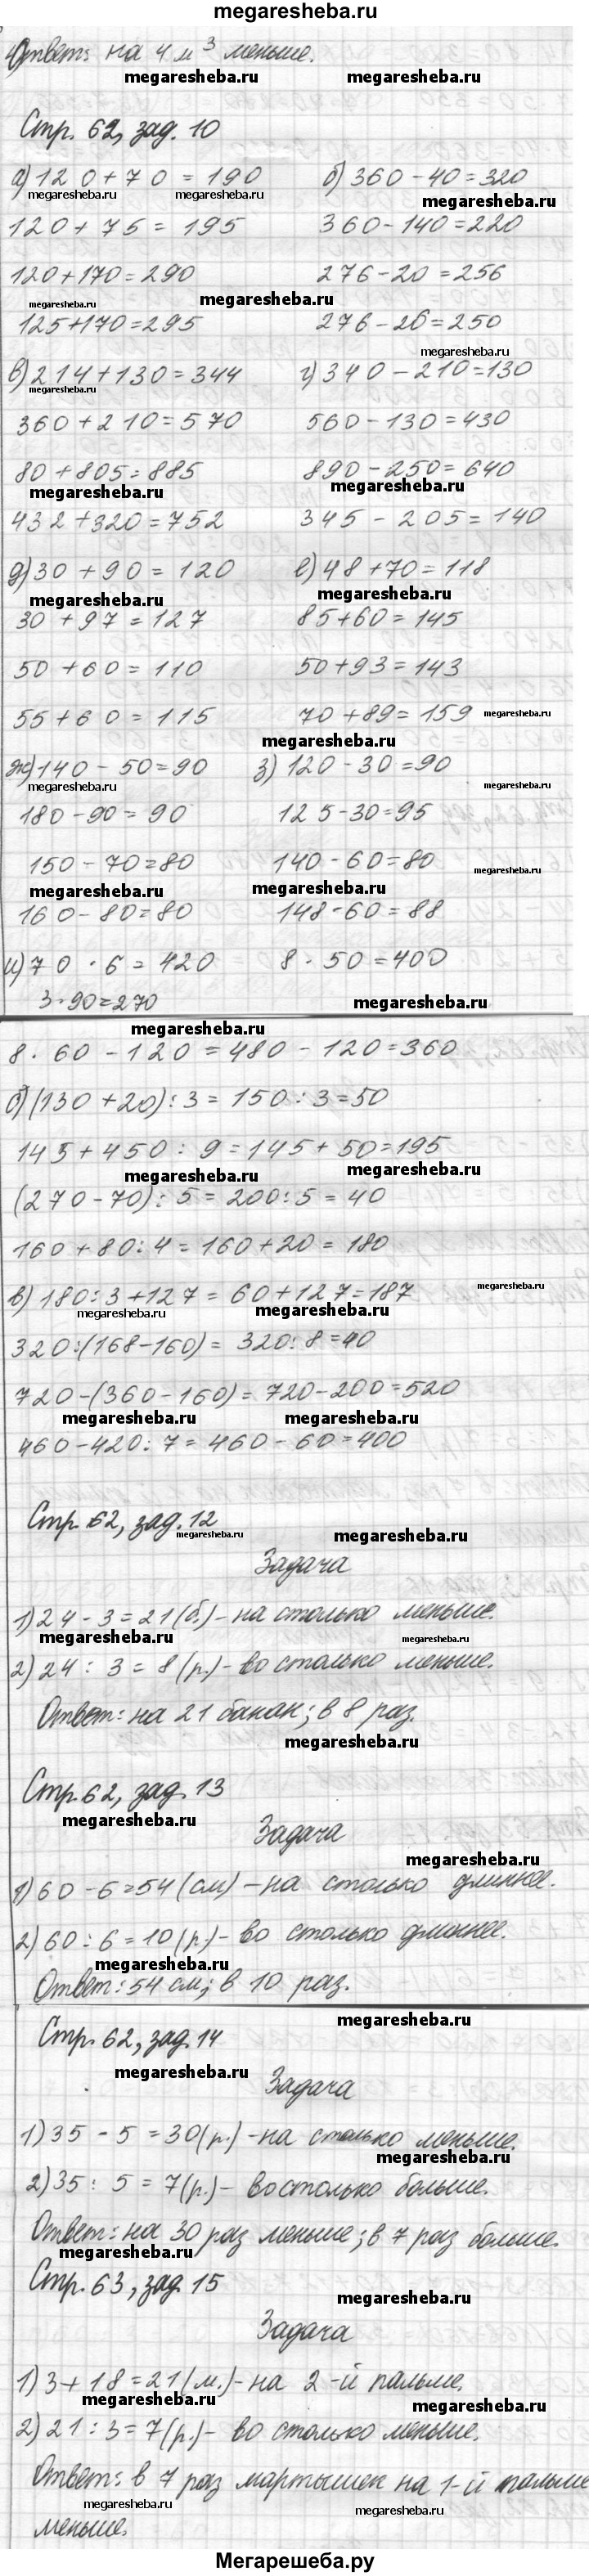 megaresheba.ru
Ответ: на 4 м³ меньше.
megaresheba.ru megaresheba.ru
Стр. 62, зад. 10
а) 120 + 70 = 190 б) 360 - 40 = 320
megaresheba.ru megaresheba.ru megaresheba.ru
120 + 75 = 195 360 - 140 = 220
120 + 170 = 290 276 - 20 = 256
megaresheba.ru megaresheba.ru
125 + 170 = 295 276 - 26 = 250
megaresheba.ru
в) 214 + 130 = 344 г) 340 - 210 = 130
megaresheba.ru
360 + 210 = 570 560 - 130 = 430
80 + 805 = 885 890 - 250 = 640
megaresheba.ru megaresheba.ru
432 + 320 = 752 345 - 205 = 140
д) 30 + 90 = 120 е) 48 + 70 = 118
megaresheba.ru megaresheba.ru
30 + 97 = 127 85 + 60 = 145
50 + 60 = 110 50 + 93 = 143
55 + 60 = 115 70 + 89 = 159 megaresheba.ru
megaresheba.ru
ж) 140 - 50 = 90 з) 120 - 30 = 90
megaresheba.ru megaresheba.ru
180 - 90 = 90 125 - 30 = 95
150 - 70 = 80 140 - 60 = 80 megaresheba.ru
megaresheba.ru megaresheba.ru
160 - 80 = 80 148 - 60 = 88
и) 70 · 6 = 420 8 · 50 = 400
3 · 90 = 270 megaresheba.ru
megaresheba.ru
8 · 60 - 120 = 480 - 120 = 360
б) (130 + 20) : 3 = 150 : 3 = 50
145 + 450 : 9 = 145 + 50 = 195
megaresheba.ru megaresheba.ru
(270 - 70) : 5 = 200 : 5 = 40
160 + 80 : 4 = 160 + 20 = 180
в) 180 : 3 + 127 = 60 + 127 = 187 megaresheba.ru
megaresheba.ru megaresheba.ru
320 : (168 - 160) = 320 : 8 = 40
720 - (360 - 160) = 720 - 200 = 520
megaresheba.ru megaresheba.ru
460 - 420 : 7 = 460 - 60 = 400
Стр. 62, зад. 12
megaresheba.ru megaresheba.ru
Задача
1) 24 - 3 = 21 (б.) - на столько меньше.
megaresheba.ru megaresheba.ru
2) 24 : 3 = 8 (р.) - во столько меньше.
Ответ: на 21 банан; в 8 раз.
megaresheba.ru
Стр. 62, зад. 13
megaresheba.ru
Задача
megaresheba.ru
1) 60 - 6 = 54 (см) - на столько длиннее.
2) 60 : 6 = 10 (р.) - во столько длиннее.
megaresheba.ru
Ответ: 54 см; в 10 раз.
megaresheba.ru
Стр. 62, зад. 14
megaresheba.ru
Задача
1) 35 - 5 = 30 (р.) - на столько меньше.
megaresheba.ru
2) 35 : 5 = 7 (р.) - во столько больше.
Ответ: на 30 раз меньше; в 7 раз больше.
megaresheba.ru
Стр. 63, зад. 15
megaresheba.ru
Задача
1) 3 + 18 = 21 (м.) - на 2-й пальме.
megaresheba.ru megaresheba.ru
2) 21 : 3 = 7 (р.) - во столько меньше.
Ответ: в 7 раз мартышек на 1-й пальме
megaresheba.ru megaresheba.ru
меньше.
Мегарешеба.ру